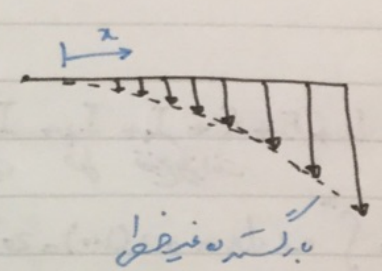 x
بار گسترده غیرخطی